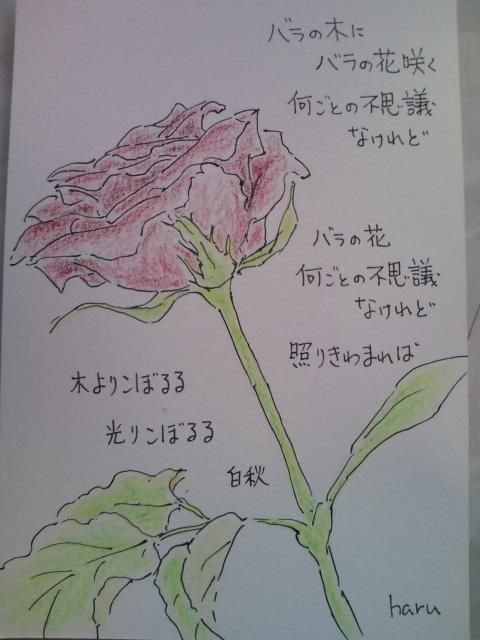 バラの木に
バラの花咲く
何ごとの不思議
なけれど
バラの花
何ごとの不思議
なけれど
照りきわまれば
木よりこぼるる
光りこぼるる
白秋
haru